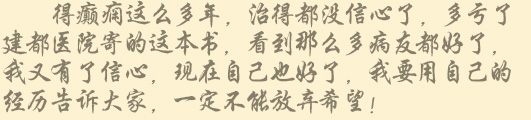 得癫痫这么多年，治得都没信心了，多亏了
建都医院寄的这本书，看到那么多病友都好了，
我又有了信心，现在自己也好了，我要用自己的
经历告诉大家，一定不能放弃希望！